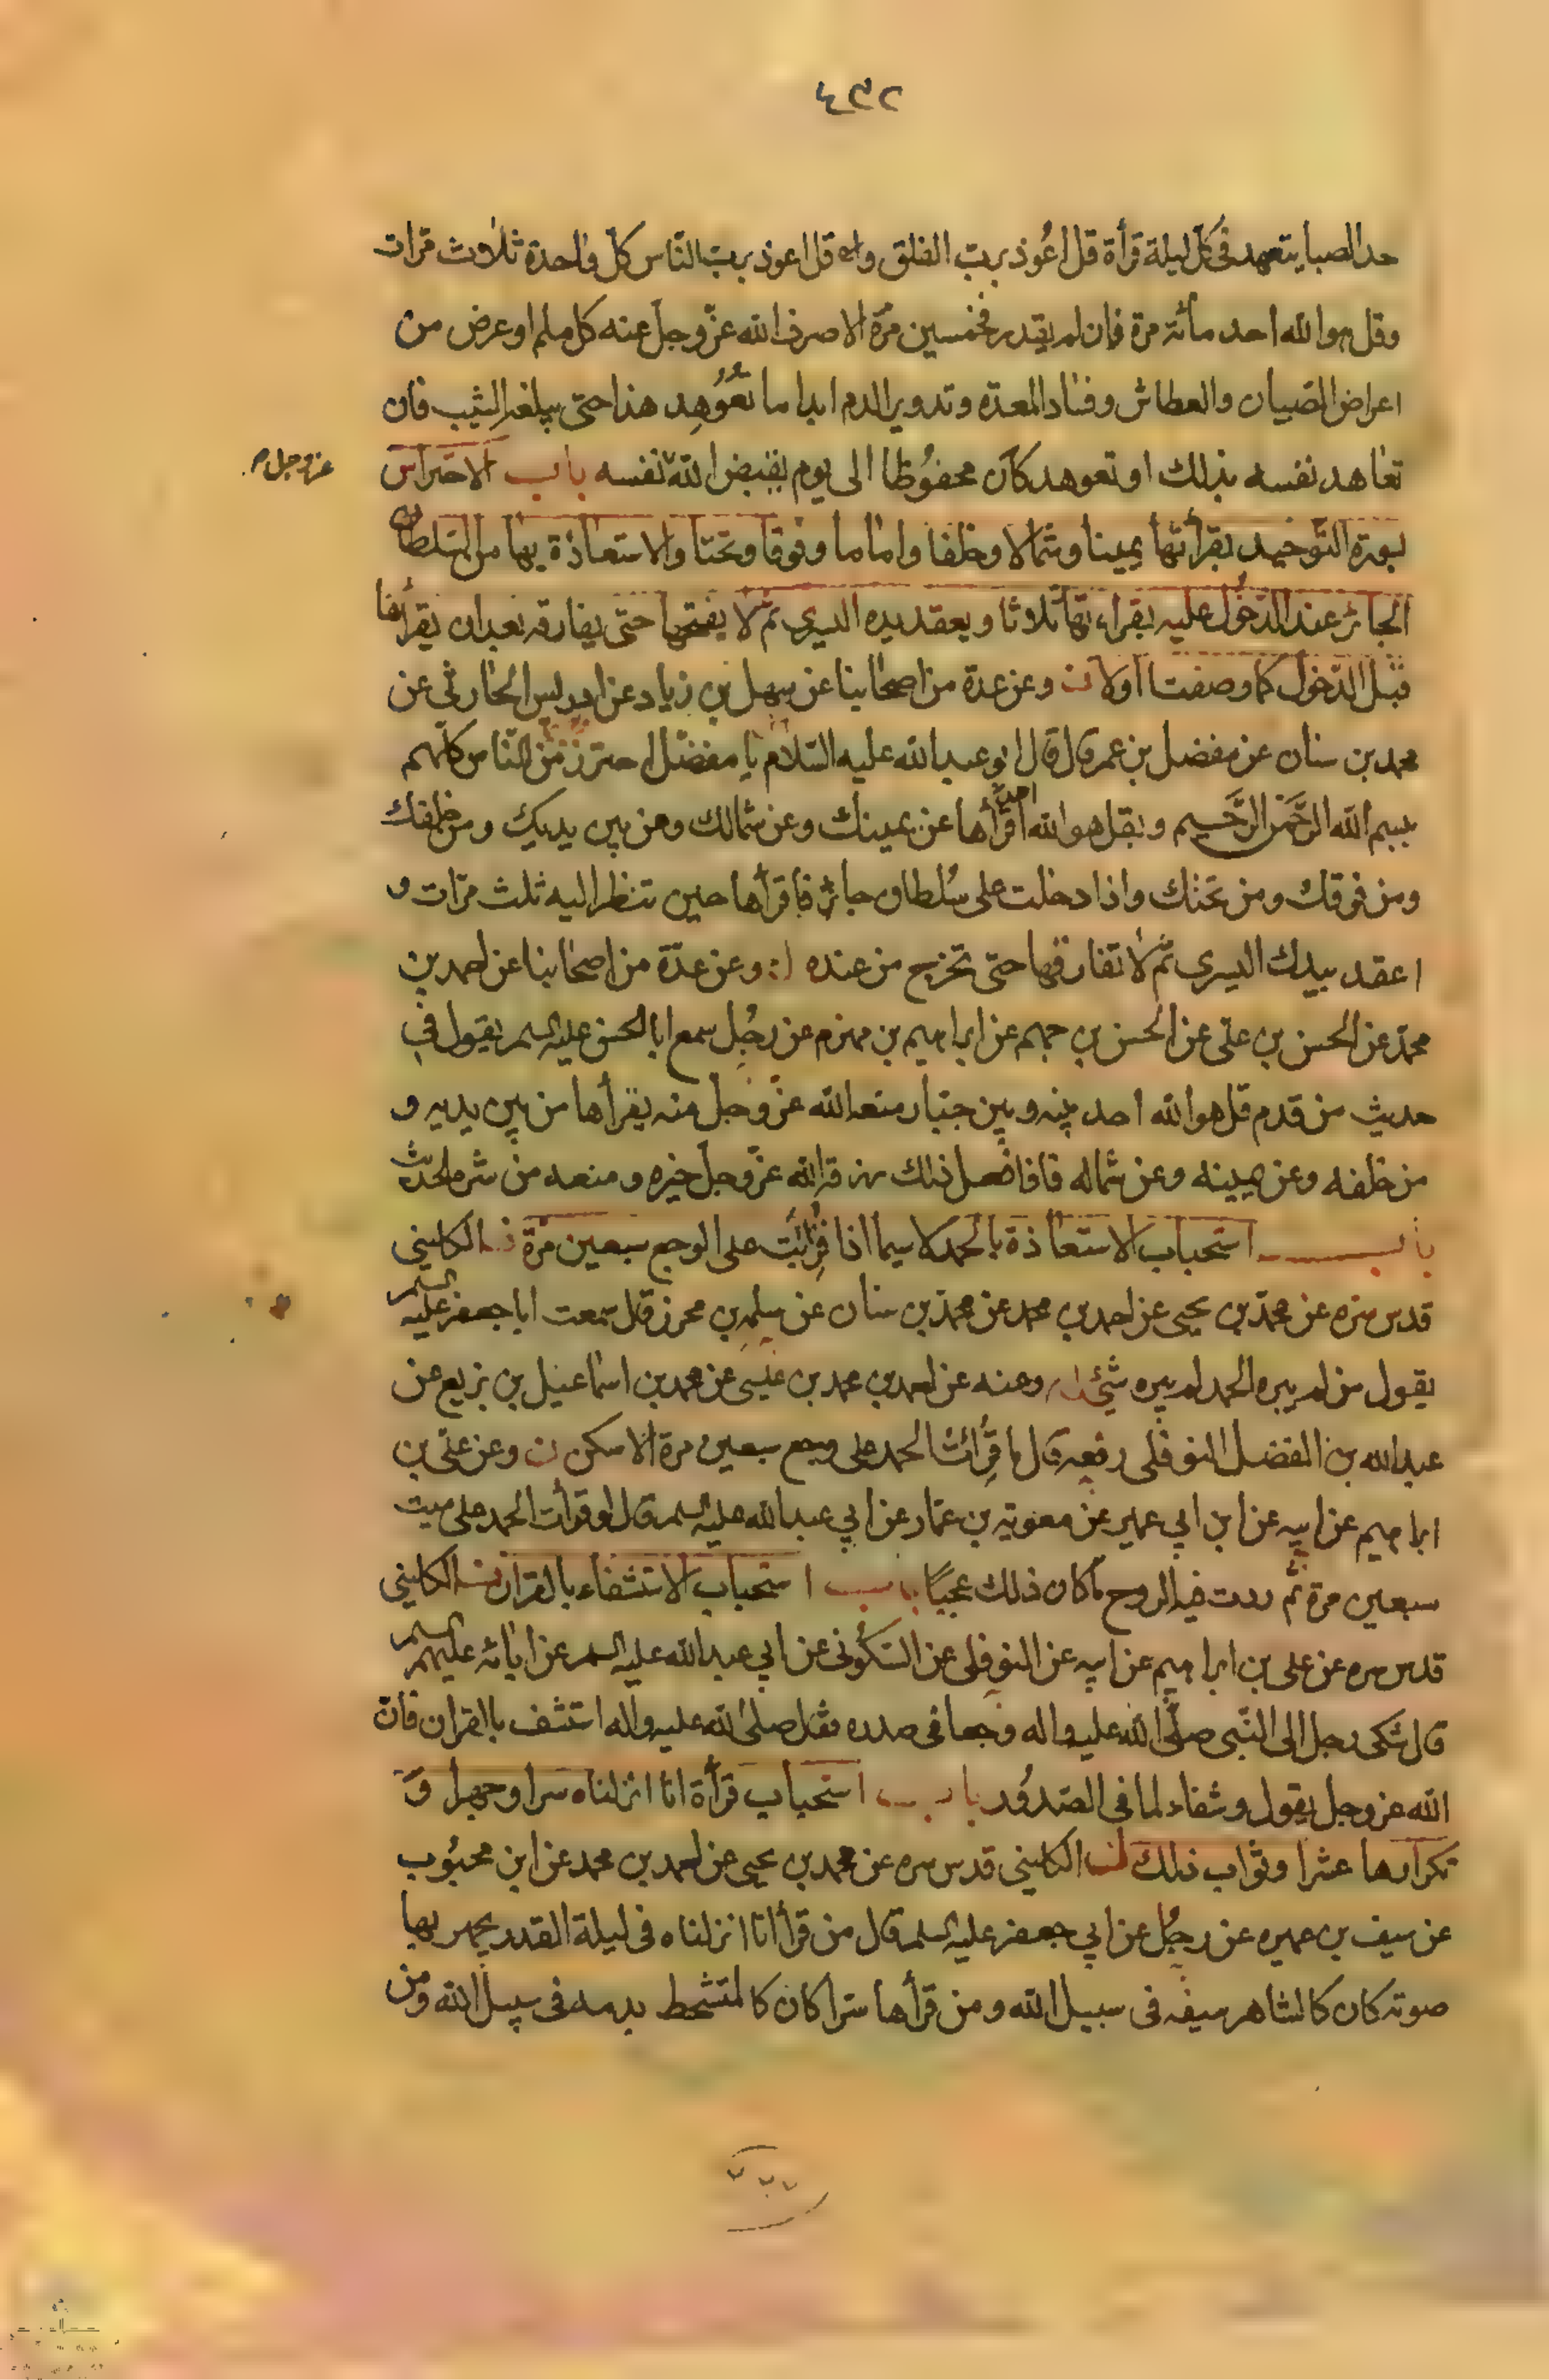 ٤٣٢
حد الصبا يتعهد فى كل ليلة قرأة قل اعُوذ بربّ الفلق و قل اعوذ بربّ النّاس كل واحدة ثلاث مرّات
وقل هو الله احد مائة مرة فان لم يقدر فخمسين مرّة الا صرف الله عزّ وجلّ عنه كل ملم او عرض من
اعراض الصّبيان والعطاش وفساد المعدّه وتدوير الدم ابدا ما تُعُوهِد هذا حتى يبلغه الشيب فان
تعاهد نفسه بذلك او تعوهد كان محفوُظا الى يوم يقبض الله نفسه باب الاحتراس
عز وجل
بسورة التّوحيد بقرأتها يمينا وشمالا وخلفا واماما وفوقا وتحتا والاستعاذة بها من السّلطان
الجائر عند الدّخُول عليه بقراءتها ثلاثا ويعقد يده اليسرى ثمّ لا يفتحها حتى يفارقه بعد ان يقرأها
قبل الدّخول كما وصفت اولا وعن عدة من اصحابنا عن سهل بن زياد عن ادريس الحارثى عن
محمد بن سنان عن مفضل بن عمر قال قال ابو عبد الله عليه السّلام يا مفضّل احترز من النّاس كلّهم
ببسم الله الرَّحمٰن الرَّحيم وبقل هو الله احد اقرأها عن يمينك وعن شمالك ومن بين يديك ومن خلفك
ومن فوقك ومن تحتك واذا دخلت على سُلطان جائر فاقرأها حين تنظر اليه ثلث مرّات و
اعقد بيدك اليسرى ثمّ لا تفارقها حتى تخرج من عنده وعن عدّة من اصحابنا عن احمد بن
محمّد عن الحسن بن علّى عن الحسن بن جهم عن ابراهيم بن مهزم عن رجُل سمع ابا الحسن عليه السلم يقول فى
حديث من قدم قل هو الله احد بينه وبين جبّار منعه الله عزّ وجلّ منه يقرأها من بين يديه و
من خلفه وعن يمينه وعن شماله فاذا فعل ذلك رزقه الله عزّ وجلّ خيره ومنعه من شره الحديث
باب استحباب الاستعاذة بالحمد لا سيما اذا قُرِئَت على الوجع سبعين مرّة الكلينى
قدس سره عن محمّد بن يحيى عن احمد بن محمد عن محمّد بن سنان عن سلمه بن محرز قال سمعت ابا جعفر عليه السلم
يقول من لم يبره الحمد لم يبره شئ وعنه عن احمد بن محمد بن عيسى عن محمد بن اسماعيل بن بزيع عن
عبد الله بن الفضل النوفلى رفعه قال ما قُرِأت الحمد على وجع سبعين مرة الا سكن ن وعن على بن
ابراهيم عن ابيه عن ابن ابي عمير عن معوية بن عمّار عن ابي عبد الله عليه السلم قال لو قرأت الحمد على ميت
سبعين مرة ثمّ ردت فيه الروح ما كان ذلك عجبًا باب استحباب الاستشفاء بالقرآن الكلينى
قدس سره عن على بن ابراهيم عن ابيه عن النوفلى عن السّكُونى عن ابي عبد الله عليه السلم عن ابائه عليهم السلم
قال شكى رجل الى النّبى صلّى الله عليه واله وجعا فى صدره فقال صلى الله عليه واله استشف بالقران فان
الله عز وجل يقول وشفاء لما فى الصّدوُر باب استحباب قرأة انا انزلناه سرا وجهرا و
تكرارها عشرا وثواب ذلك الكلينى قدس سره عن محمد بن يحيى عن احمد بن محمد عن ابن محبُوب
عن سيف بن عميره عن رجُل عن ابي جعفر عليه السلم قال من قرأ انا انزلناه فى ليلة القدر يجهر بها
صوته كان كالشاهر سيفه فى سبيل الله ومن قرأها سرّا كان كالمتشحط بدمه فى سبيل الله ومن